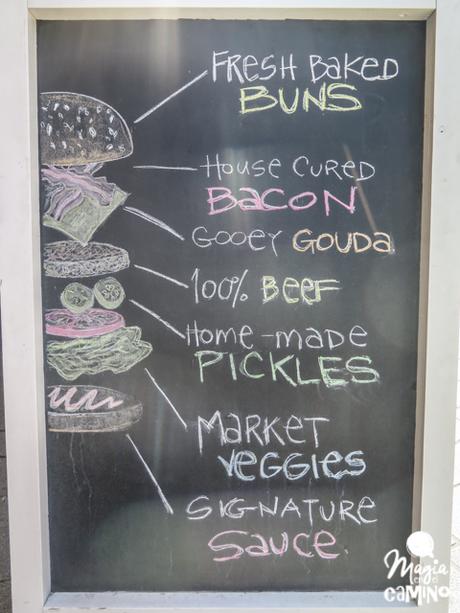 FRESH BAKED
BUNS
HOUSE CURED
BACON
GOOEY GOUDA
100% BEEF
HOME-MADE
PICKLES
MARKET
VEGGIES
SIGNATURE
SAUCE
Magia
en el
CAMINO